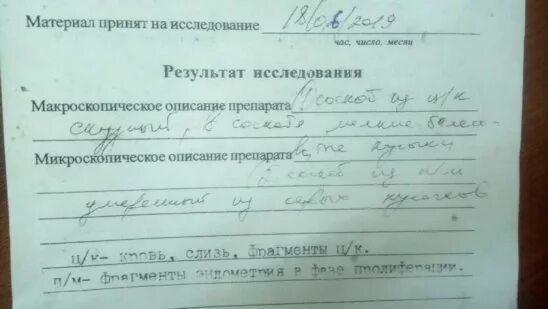 Материал принят на исследование 18/06/2019
час, число, месяц
Результат исследования
Макроскопическое описание препарата 1) соскоб из ц/к
скудный, в соскобе мелкие белем-
Микроскопическое описание препарата кусочки
2) соскоб из п/м
умеренный из серых кусочков
ц/к- кровь, слизь, фрагменты ц/к.
п/м- фрагменты эндометрия в фазе пролиферации.